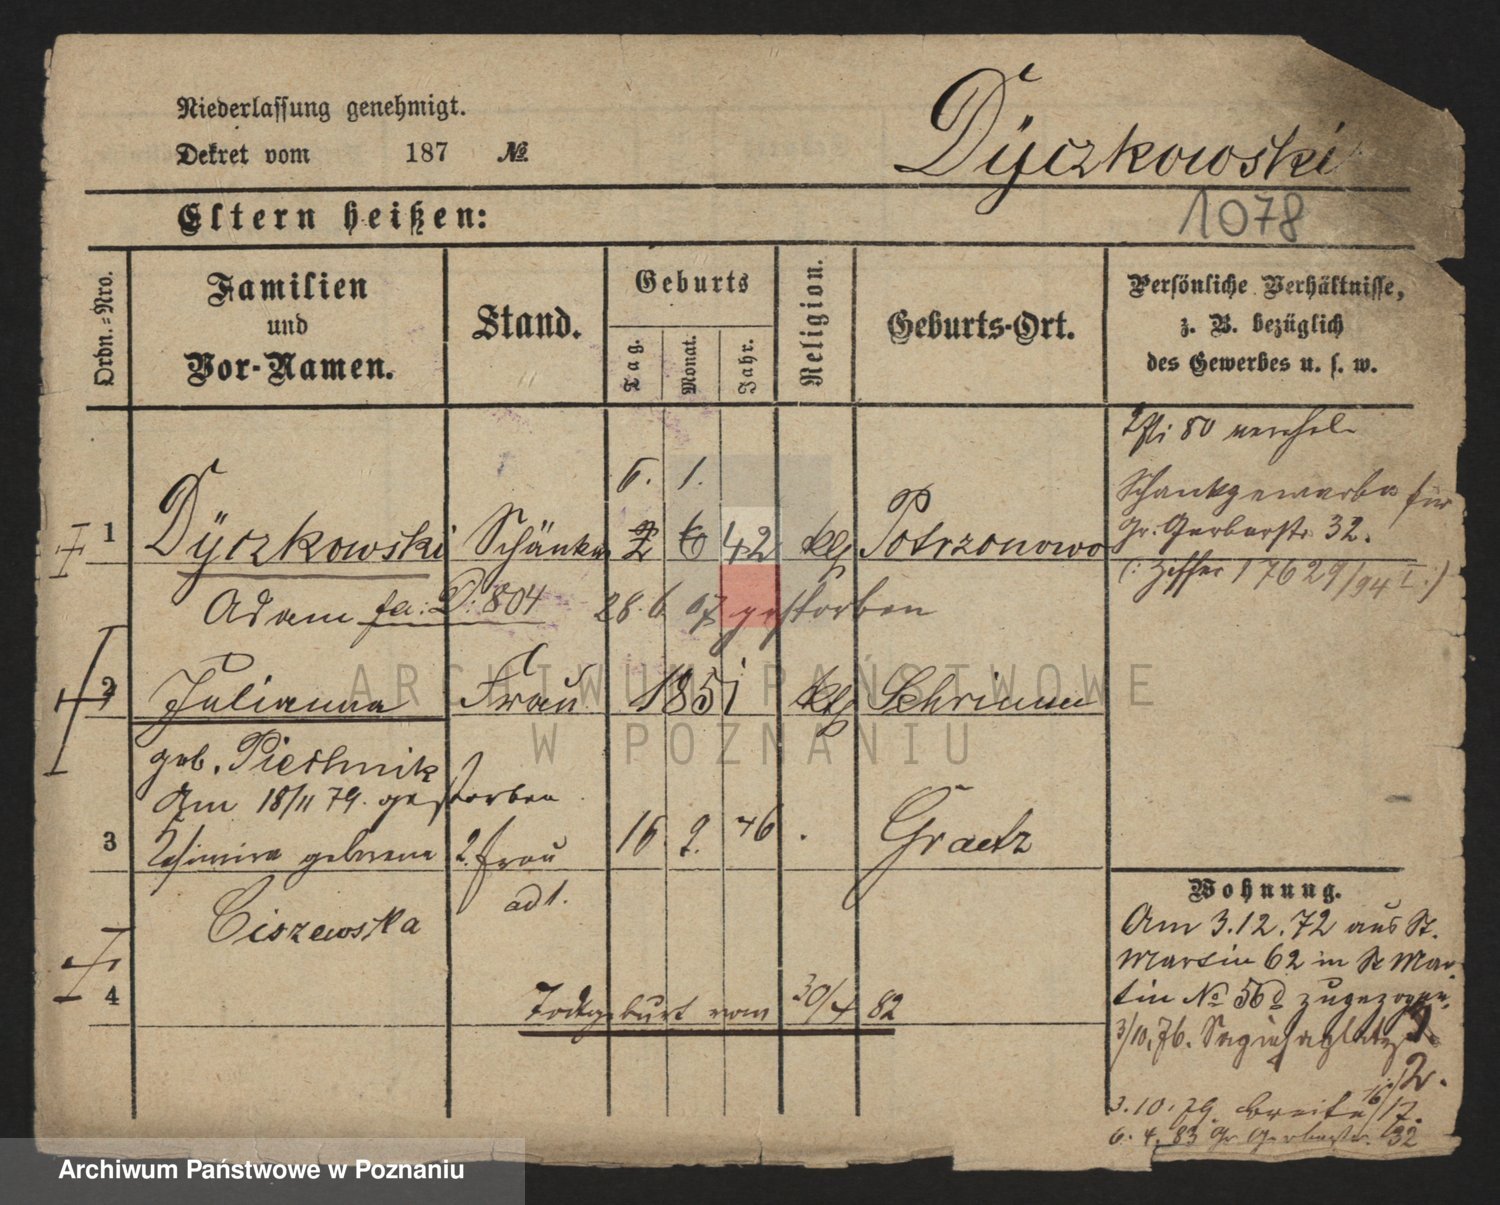 Niederlassung genehmigt.
Dekret vom 187 №
Dÿczkowski
Eltern heißen:
1078
Ordn.-Nro.
Familien
und
Vor-Namen.
Stand.
Geburts
Tag.
Monat.
Jahr.
Religion.
Geburts-Ort.
Persönliche Verhältnisse,
z. B. bezüglich
des Gewerbes u. s. w.
80 verehel.
6. 1.
Schankgewerbe für
1 Dÿczkowski Schänker 2 6 42 ktl Potrzonowo
Gr. Gerberstr. 32.
(: Ziffer 17629/94 I :)
Adam fa: D: 804 28. 6. 97 gestorben
2 Julianna Frau 1851 ktl Schrimm
geb. Piechnik
Am 18/11 79. gestorben
3 geborene 2. Frau 16. 2. 46 Graetz
ad 1.
Ciszewska
4 Todtgeburt vom 30/4 82
Wohnung.
Am 3.12.72 aus St.
Martin 62 in St Mar-
tin № 56d zugezogen.
3/10. 76. Sapiehaplatz
2.
3.10.79. breite 16/17.
6. 4. 83 Gr Gerberstr. 32
ARCHIWUM PAŃSTWOWE
W POZNANIU
Archiwum Państwowe w Poznaniu